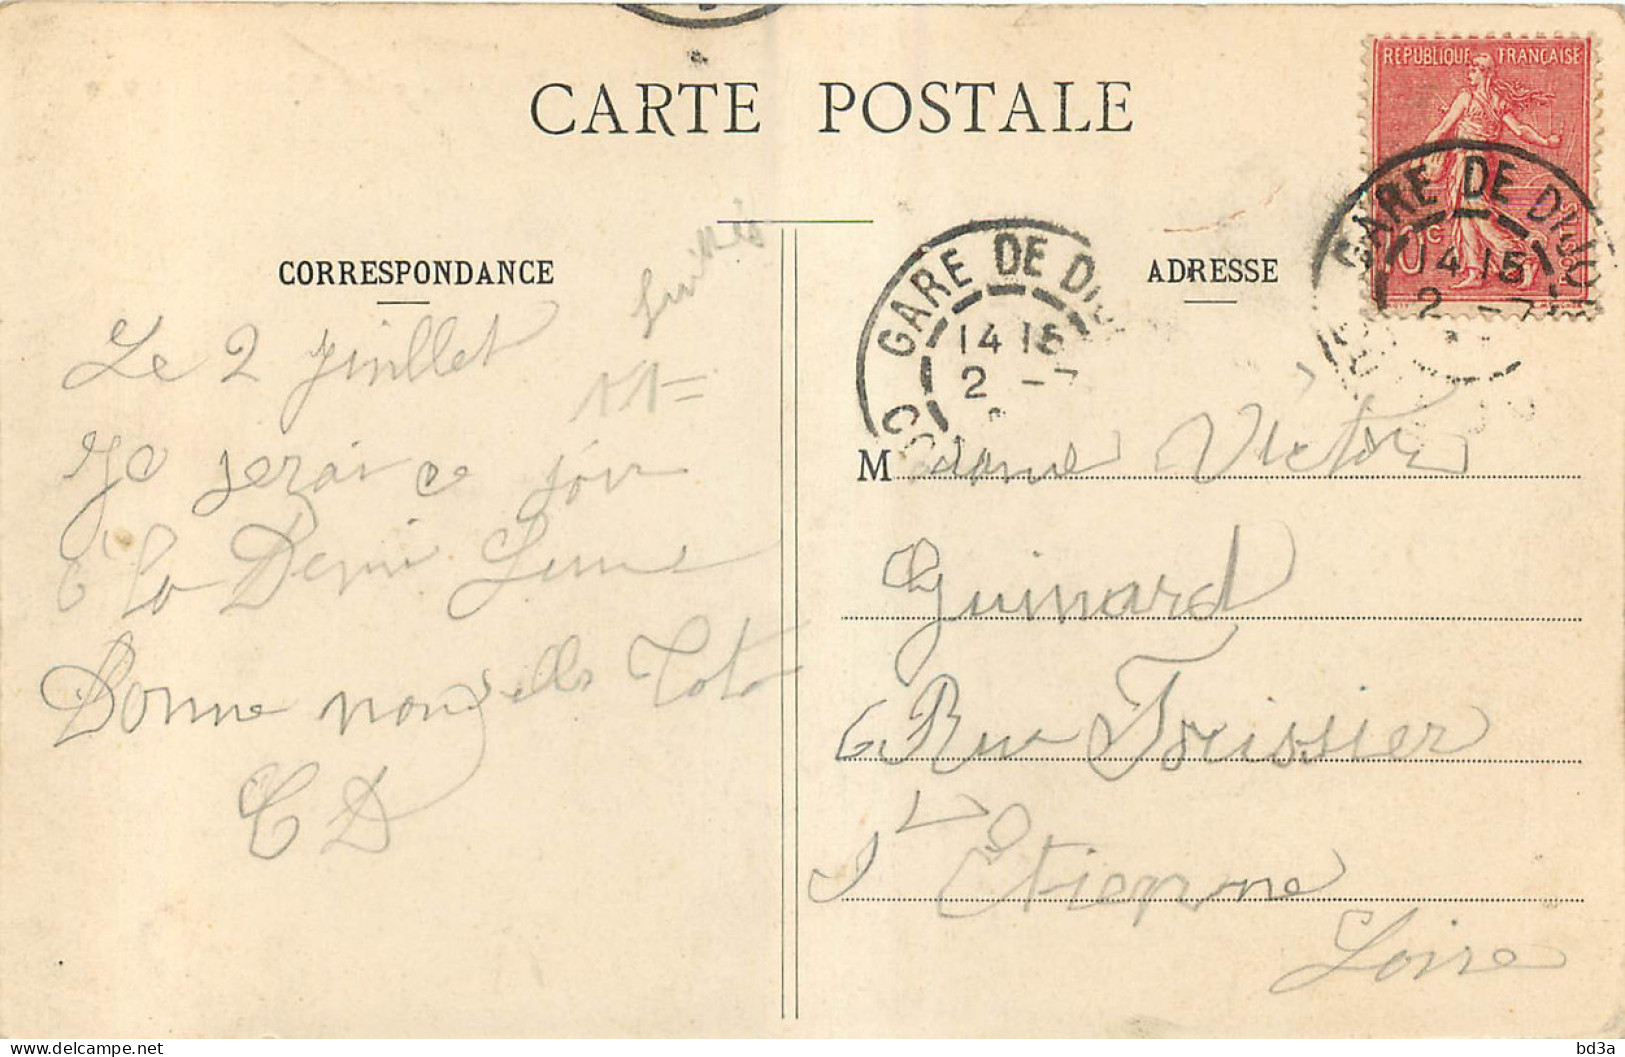 CARTE POSTALE
RÉPUBLIQUE FRANÇAISE
10c
GARE DE DIJON
14 15
2 -7
CORRESPONDANCE
Le 2 juillet
Je serai ce soir
a la Demi Lune
Bonne nouvells Toto
CD
11=
ADRESSE
GARE DE DIJ
14 15
2 -7
Madame Victor
Guinard
6 Rue Tissier
St Etienne
Loire
Delcampe.net
bd3a